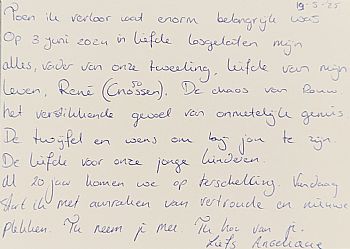 19-5-25
Toen ik verloor wat enorm belangrijk was
Op 3 juni 2024 in liefde losgelaten mijn
alles, vader van onze tweeling, liefde van mijn
leven, René (Cnossen). De chaos van Rouw.
het verstikkende gevoel van onmetelijk gemis
De twijfel en wens om bij jou te zijn.
De liefde voor onze jonge kinderen.
Al 20 jaar komen we op terschelling. Vandaag
start ik met aanraken van vertrouwde en nieuwe
plekken. Ik neem je mee. Ik hou van je.
Liefs Angelique